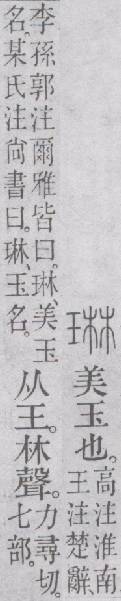 琳美玉也。高注淮南
王注楚辭
李孫郭注爾雅皆曰。琳、美玉
名。某氏注尙書曰。琳、玉名。
从王。林聲。力尋切。
七部。